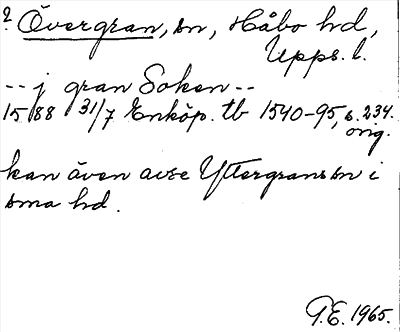 ? Övergran, sn, Håbo hd,
Upps. l.
-- j gran Soken --
1588 31/7 Enköp. tb 1540-95, s. 234.
orig.
kan även avse Yttergrans sn i
sma hd.
P.E. 1965.